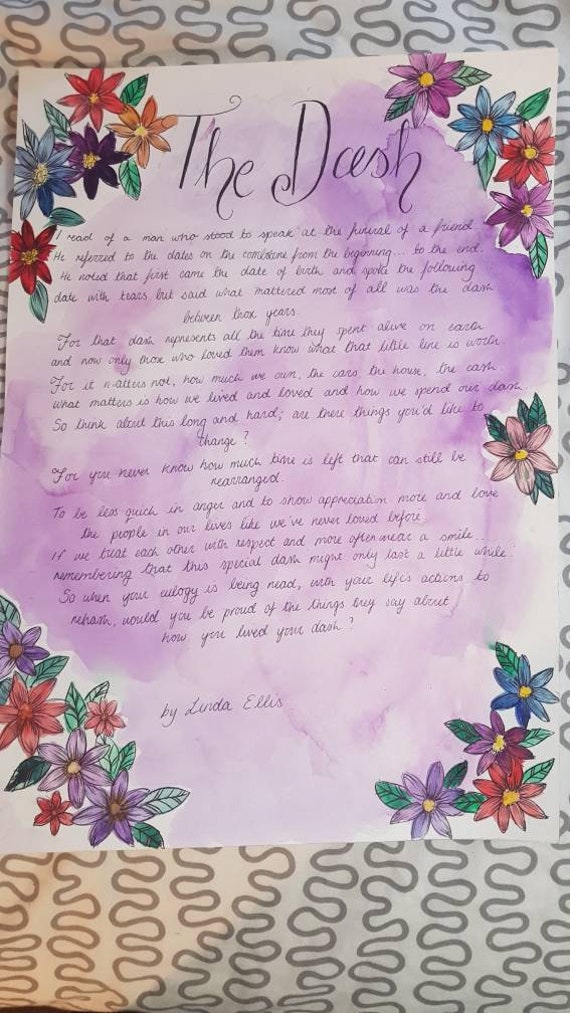 The Dash
I read of a man who stood to speak at the funeral of a friend
He referred to the dates on the tombstone from the beginning... to the end.
He noted that first came the date of birth and spoke the following
date with tears but said what mattered most of all was the dash
between those years.
For that dash represents all the time they spent alive on earth
and now only those who loved them know what that little line is worth.
For it matters not, how much we own, the cars, the house, the cash
what matters is how we lived and loved and how we spend our dash.
So think about this long and hard; are there things you'd like to
change?
For you never know how much time is left that can still be
rearranged.
To be less quick in anger and to show appreciation more and love
the people in our lives like we've never loved before.
If we treat each other with respect and more often wear a smile...
remembering that this special dash might only last a little while.
So when your eulogy is being read, with your life's actions to
rehash, would you be proud of the things they say about
how you lived your dash?
by Linda Ellis